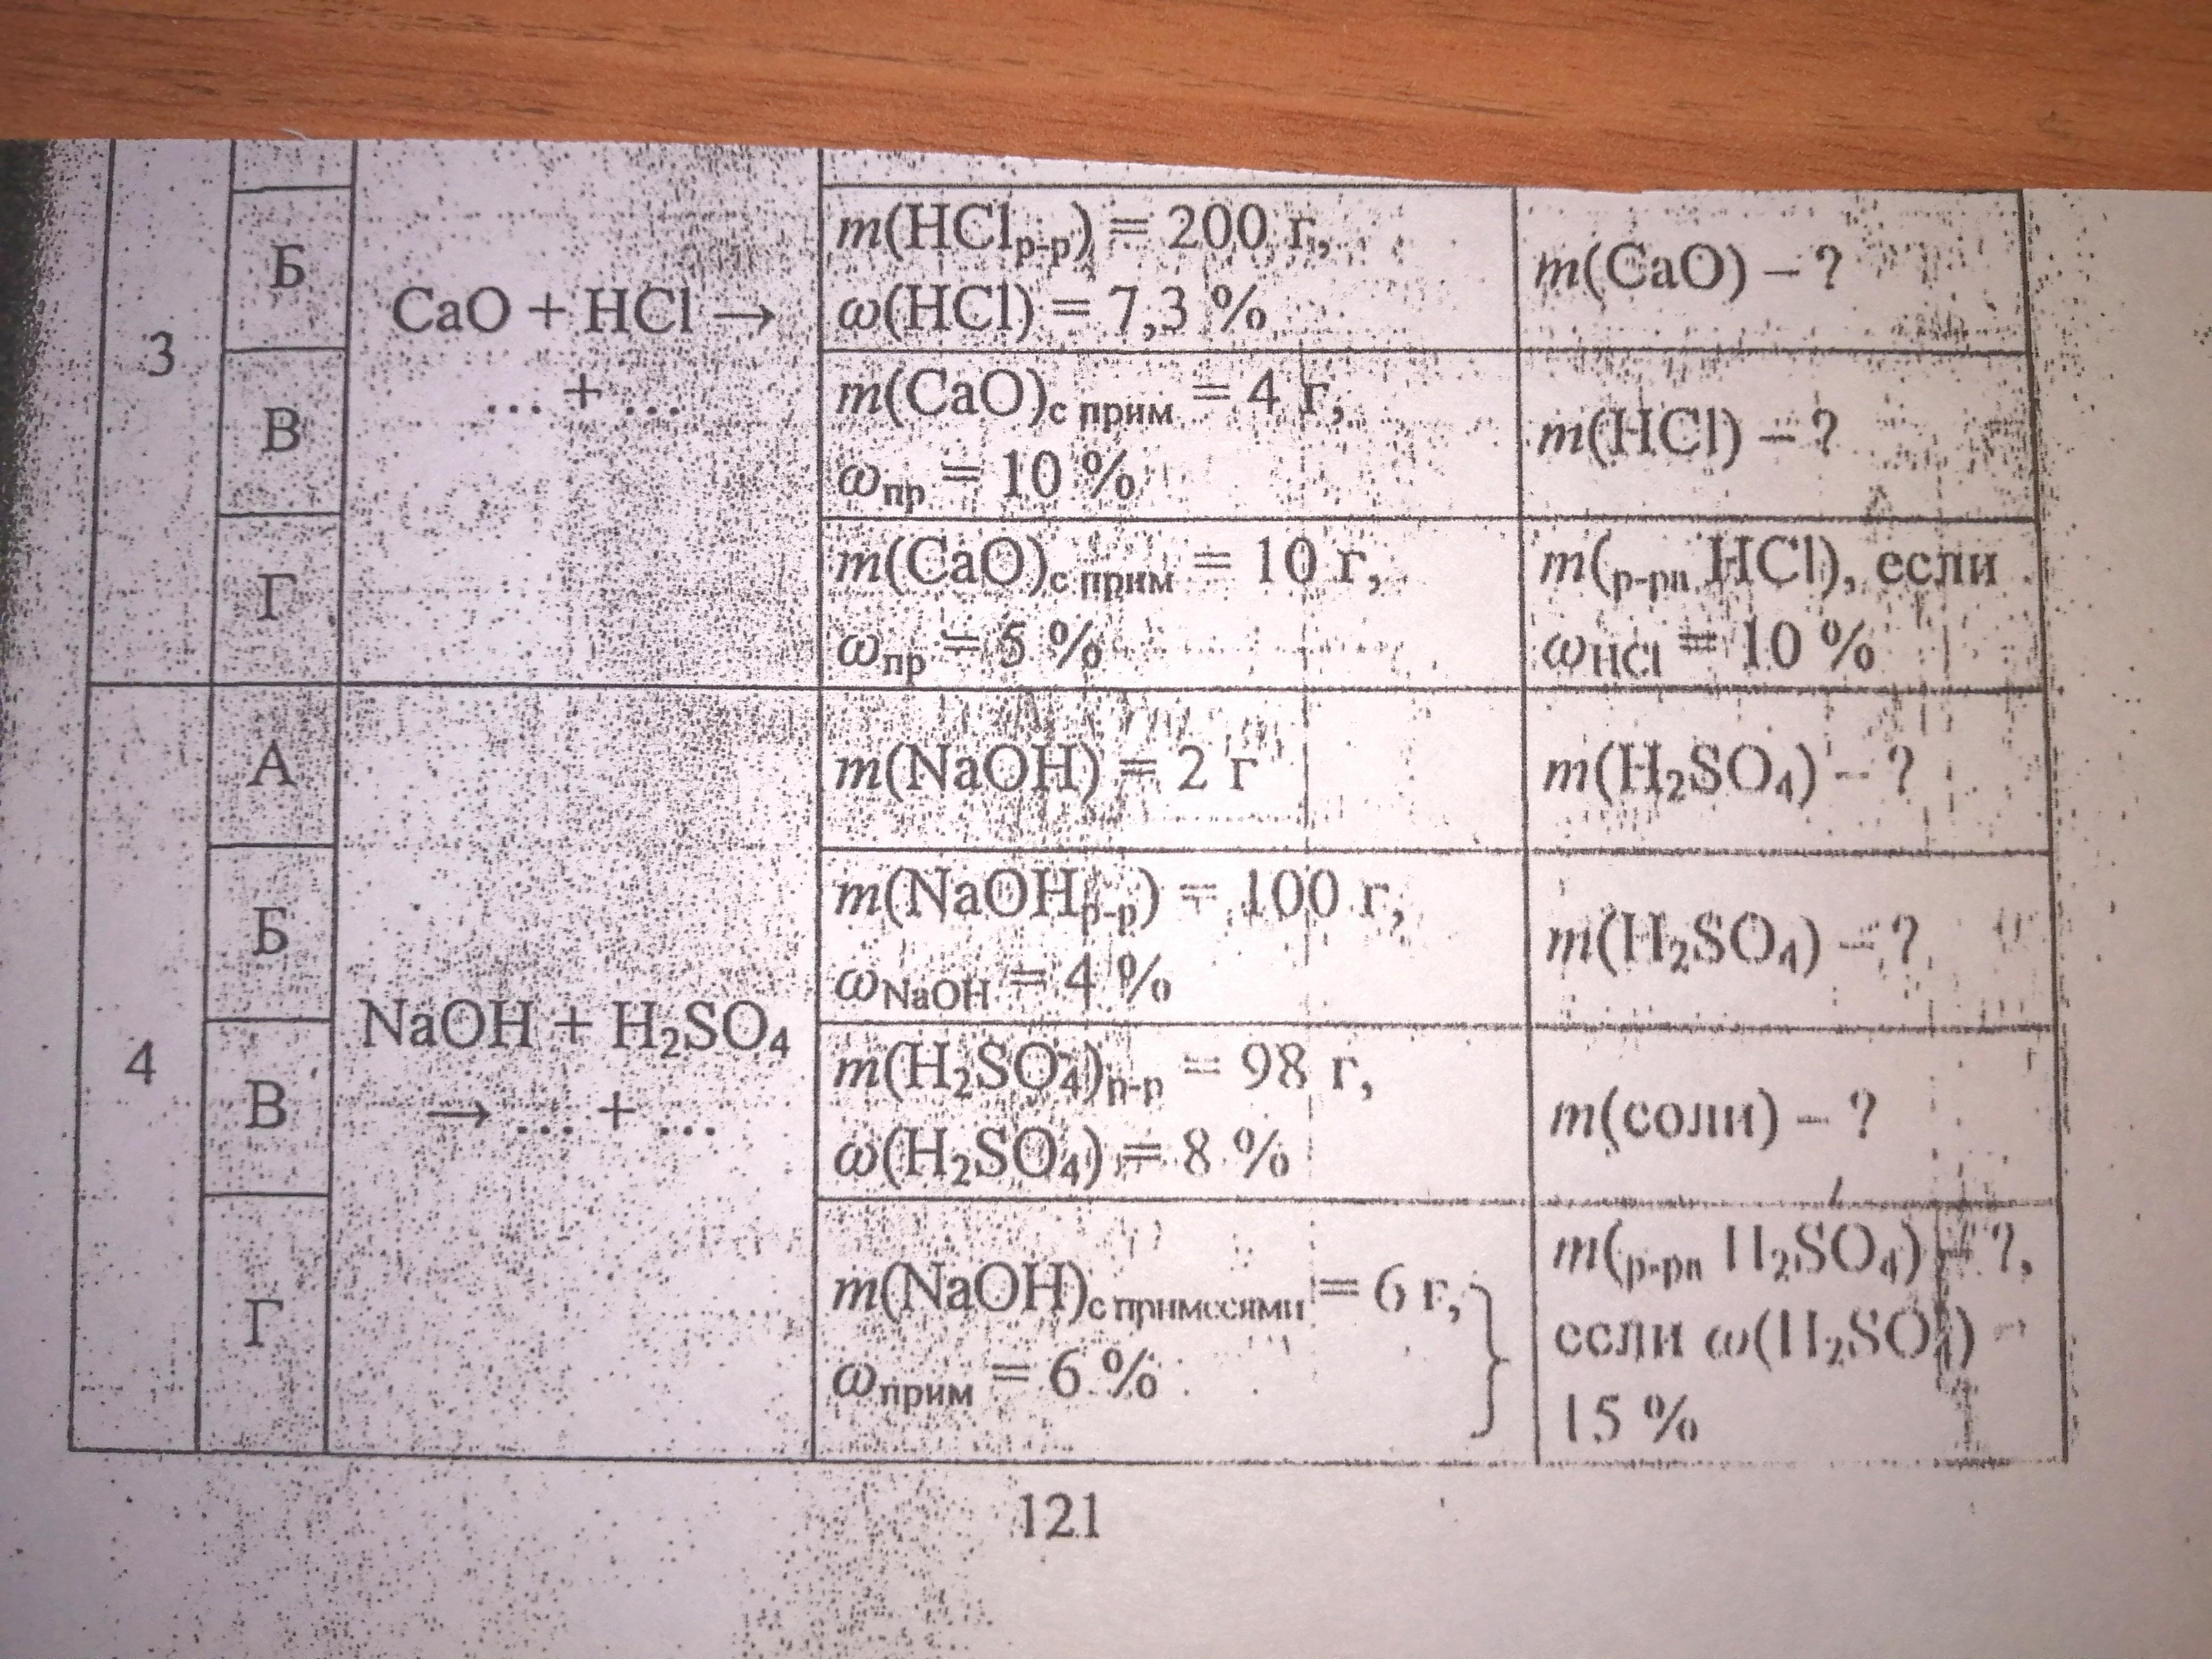 3
CaO + HCl →
... + ...
Б
m(HClр-р) = 200 г,
ω(HCl) = 7,3 %
m(CaO) – ?
В
m(CaO)с прим = 4 г,
ωпр = 10 %
m(HCl) – ?
Г
m(CaO)с прим = 10 г,
ωпр = 5 %
m(р-ра HCl), если
ωHCl = 10 %
4
NaOH + H₂SO₄
→ ... + ...
А
m(NaOH) = 2 г
m(H₂SO₄) – ?
Б
m(NaOHр-р) = 100 г,
ωNaOH = 4 %
m(H₂SO₄) – ?
В
m(H₂SO₄)р-р = 98 г,
ω(H₂SO₄) = 8 %
m(соли) – ?
Г
m(NaOH)с примесями = 6 г,
ωприм = 6 %
m(р-ра H₂SO₄) – ?,
если ω(H₂SO₄) –
15 %
121